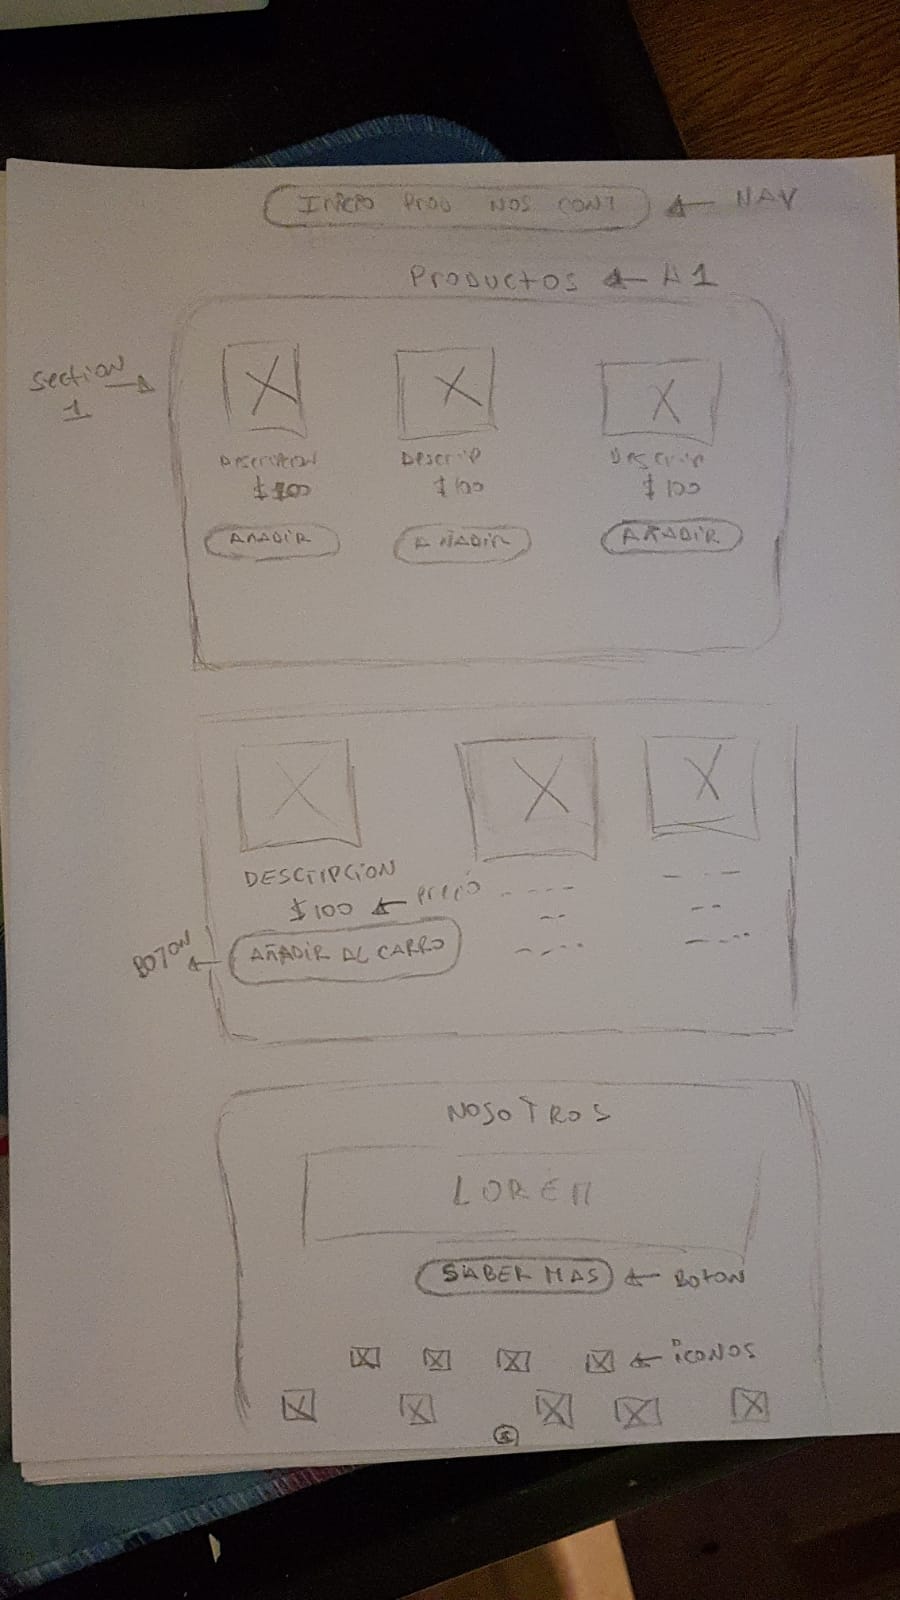 INICIO PROD NOS CONT ← NAV
Productos ← H1
Section → 1
DESCRIPCION Descrip Descrip
$100 $100 $100
AÑADIR AÑADIR AÑADIR
DESCRIPCION
$100 ← precio
BOTON ← AÑADIR AL CARRO
NOSOTROS
LOREM
SABER MAS ← BOTON
← iCONOS